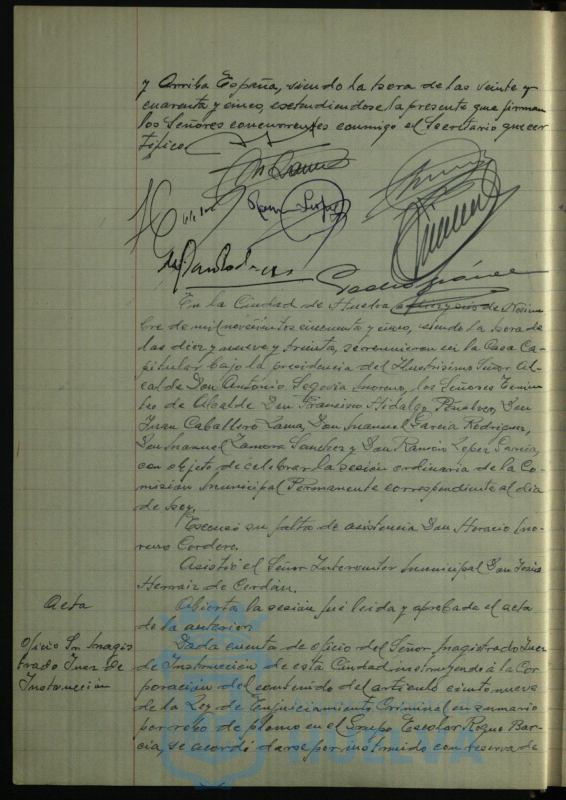 y Arriba España, siendo la hora de las veinte y
cuarenta y cinco, extendiendose la presente que firman
los Señores concurrentes conmigo el Secretario que cer
tifico.
En la Ciudad de Huelva a de Noviem
bre de mil novecientos cincuenta y cinco, siendo la hora de
las diez y nueve y treinta, se reunieron en la Casa Ca-
pitular bajo la presidencia del Ilustrisimo Señor Al-
calde Don António Segovia Moreno, los Señores Tenien
tes de Alcalde Don Francisco Hidalgo Peñalosa, Don
Juan Caballero Lama, Don Manuel García Rodriguez,
Don Manuel Zamora Sanchez y Don Ramón Lopez García,
con objeto de celebrar la sesión ordinaria de la Co-
misión Municipal Permanente correspondiente al dia
de hoy.
Excusó su falta de asistencia Don Horacio Mo-
reno Cordero.
Asistió el Señor Interventor Municipal Don Jesús
Herraiz de Cerdán.
Acta
Abierta la sesión fué leida y aprobada el acta
de la anterior.
Oficio Sr. Magis
trado Juez de
Instrucción
Dada cuenta de oficio del Señor Magistrado Juez
de Instrucción de esta Ciudad instruyendo á la Cor
poración del contenido del articulo ciento nueve
de la Ley de Enjuiciamiento Criminal en sumario
por robo de plomo en el Grupo Escolar Roque Bar-
cia, se acordó darse por instruido con reserva de
HUELVA